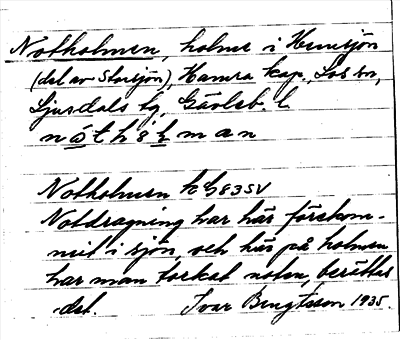 Notholmen, holme i Hemsjön
(del av Storsjön), Hamra kap., Los sn,
Ljusdals tg, Gävleb. l
Notholmen
Notdragning har här förekom-
mit i sjön, och här på holmen
har man torkat noten, berättas
det. Ivar Bengtsson 1935